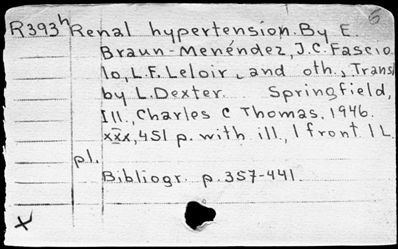 6
R393h Renal hypertension. By E.
Braun-Menéndez, J.C. Fascio
lo, L.F. Leloir, and oth., Transl
by L. Dexter. Springfield,
Ill., Charles C Thomas, 1946.
xxx, 451 p. with ill., 1 front 1 L
pl.
Bibliogr. p. 357-441.
X